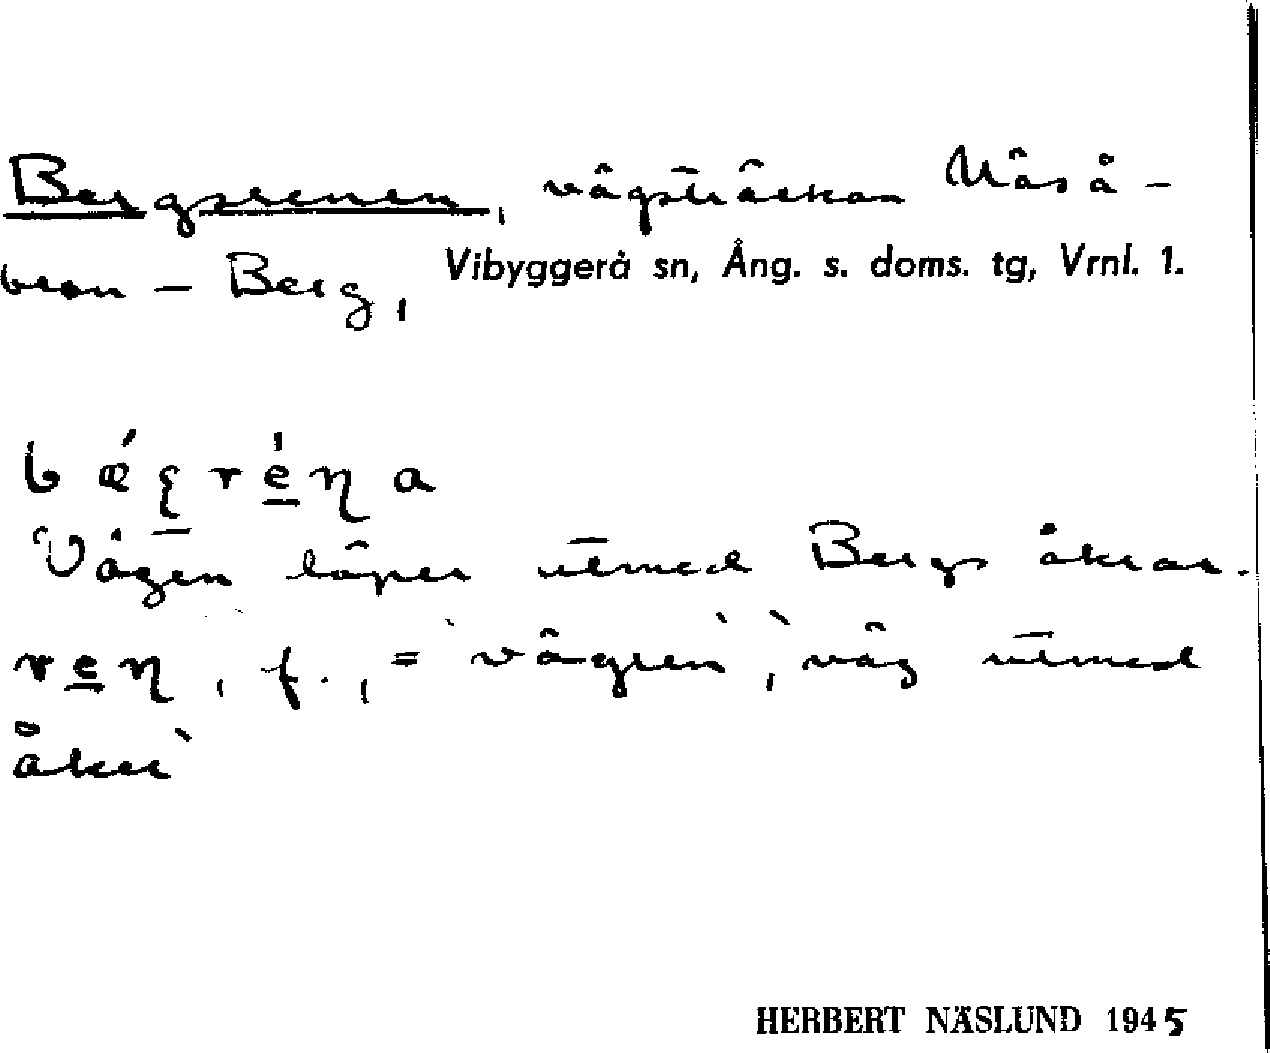 Bergsrenen, vägsträckan Näså-
bron - Berg,
Vibyggerå sn, Ång. s. doms. tg, Vrnl. 1.
Vägen löper utmed Bergs åkrar.
f., = `vägren`, `väg utmed
åker`
HERBERT NÄSLUND 1945